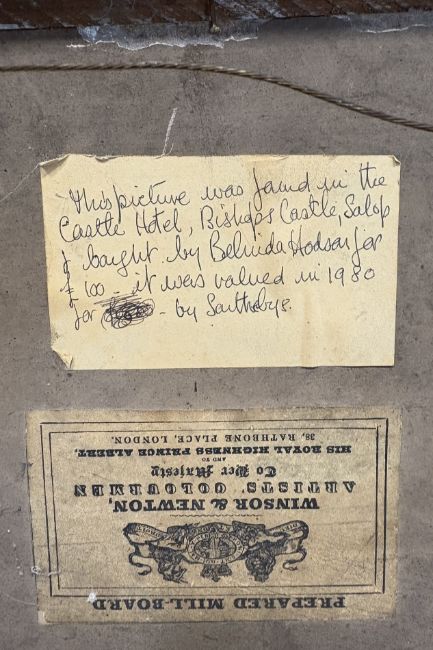 This picture was found in the
Castle Hotel, Bishops Castle, Salop
& bought by Belinda Hodson for
£100 – it was valued in 1980
for – by Sothebys.
PREPARED MILL-BOARD
WINSOR & NEWTON,
ARTISTS' COLOURMEN
To Her Majesty
AND TO
HIS ROYAL HIGHNESS PRINCE ALBERT.
38, RATHBONE PLACE, LONDON.